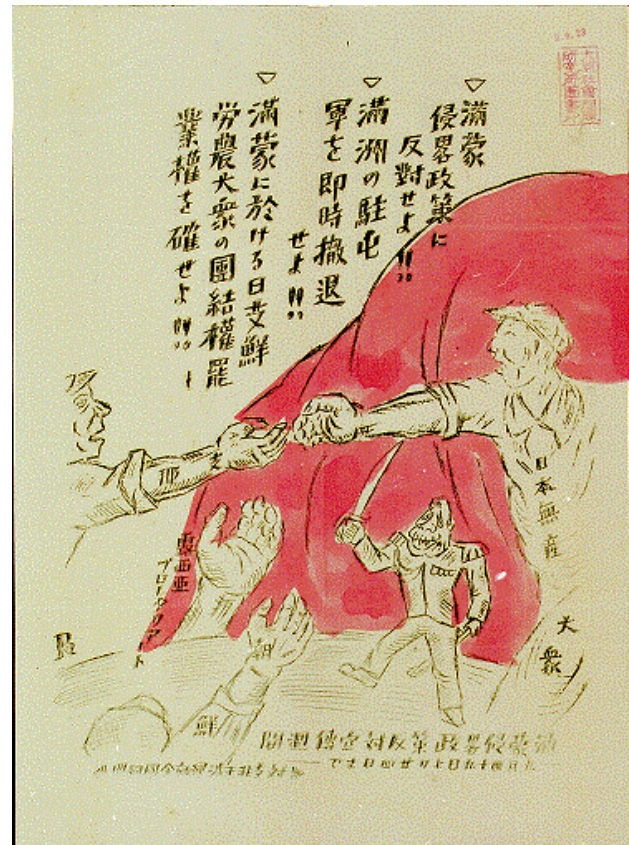 ▽滿蒙
侵畧政策に
反對せよ!!
▽滿洲の駐屯
軍を即時撤退
せよ!!
▽滿蒙に於ける日支鮮
労農大衆の團結權罷
業權を確せよ!!!
支那
日本無産
大衆
露西亜
プロレタリアート
朝鮮
滿蒙侵畧政策反對宣傳週間